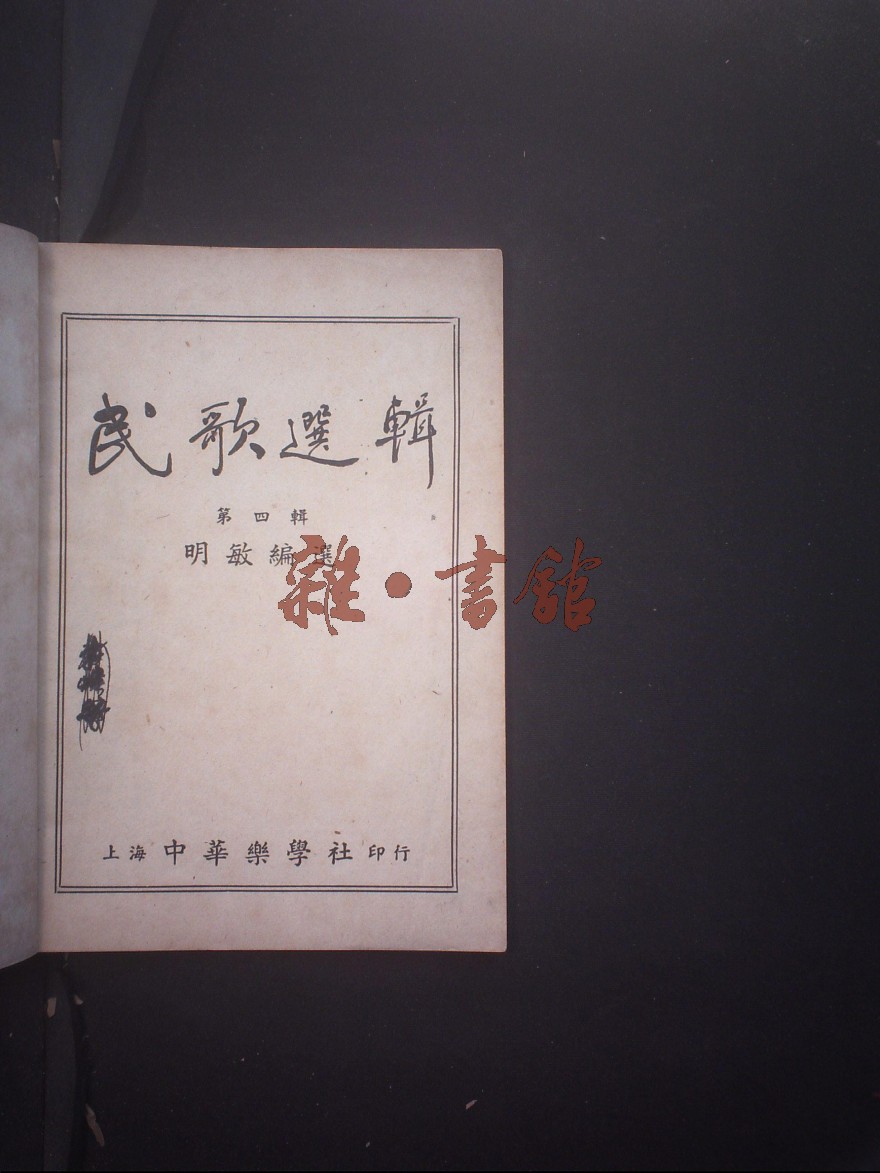 民歌選輯
第四輯
明敏編選
雜·書館
上海中華樂學社印行